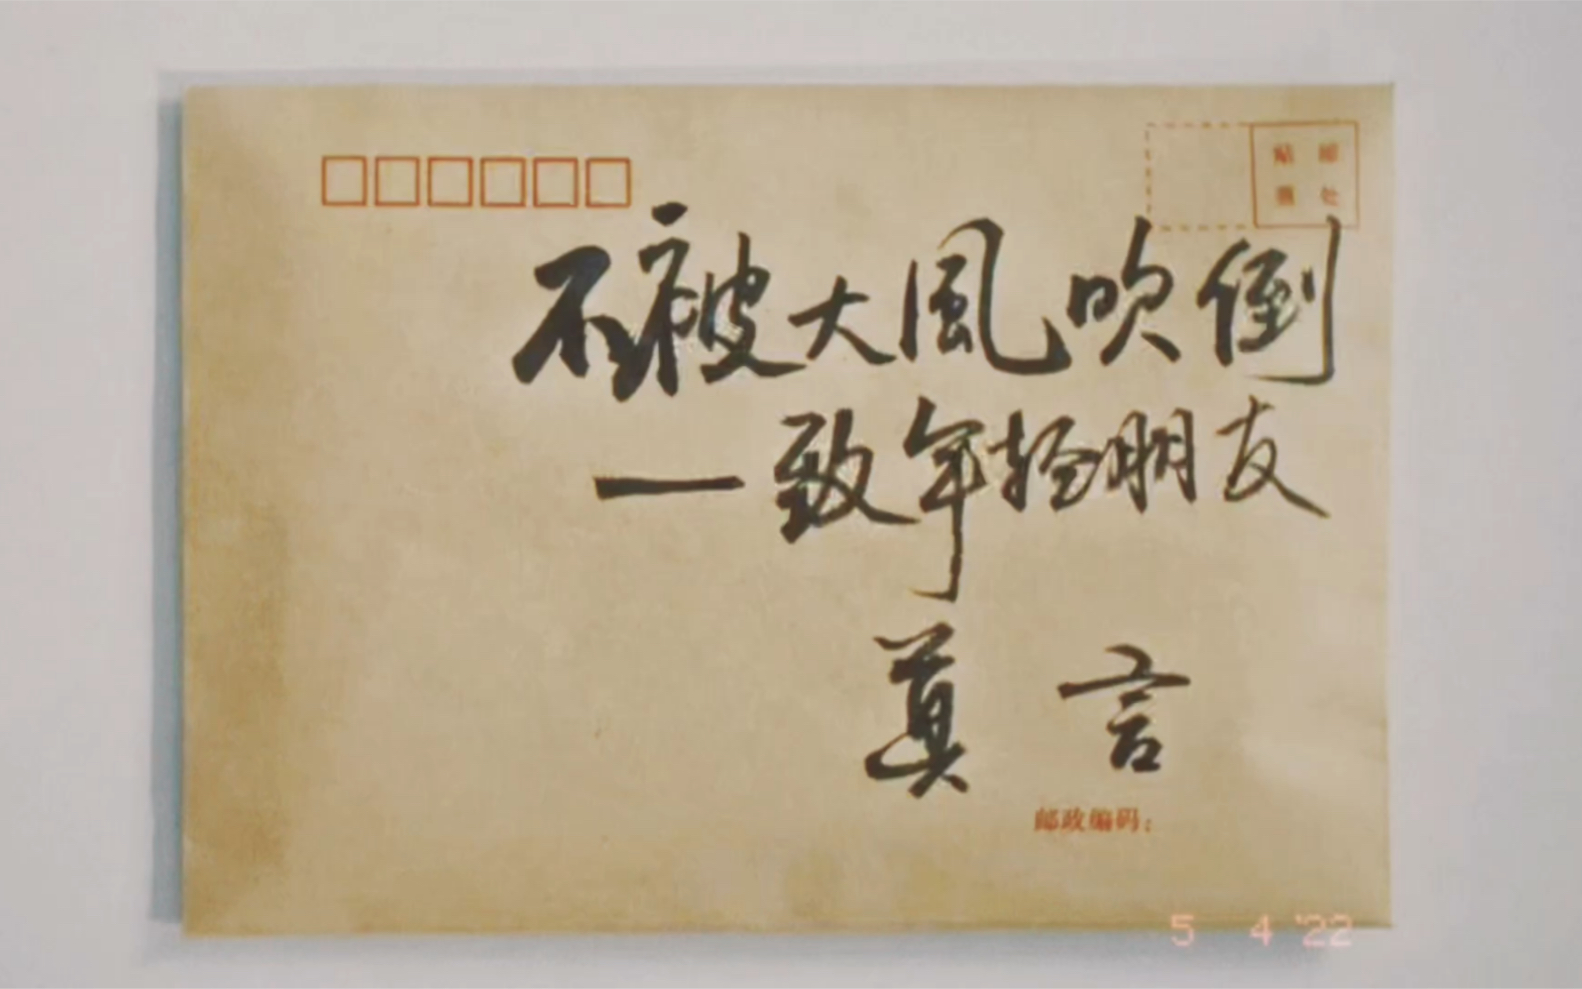 贴 邮
票 处
不被大風吹倒
—致年轻朋友
莫言
邮政编码：
5 4 '22